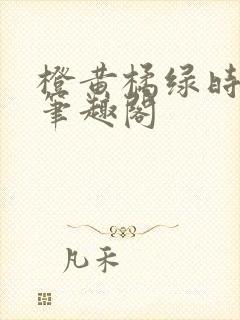 橙黄橘绿时
笔趣阁
凡禾